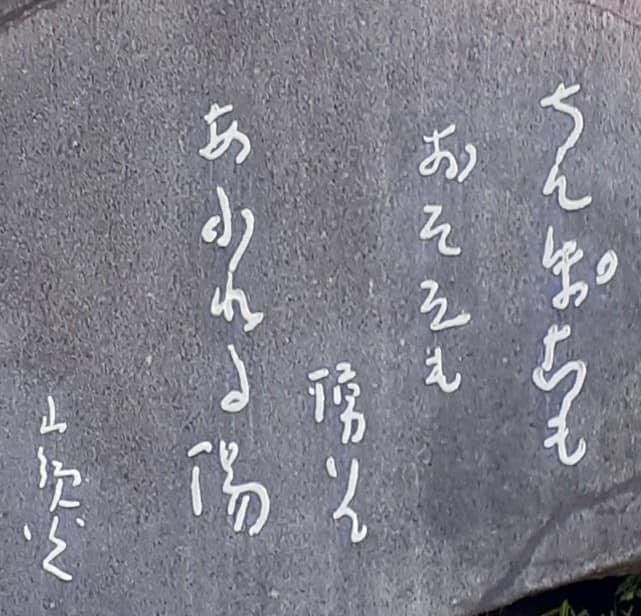 ちんぽこも
おそそも
湧いて
あふれる湯
山頭火